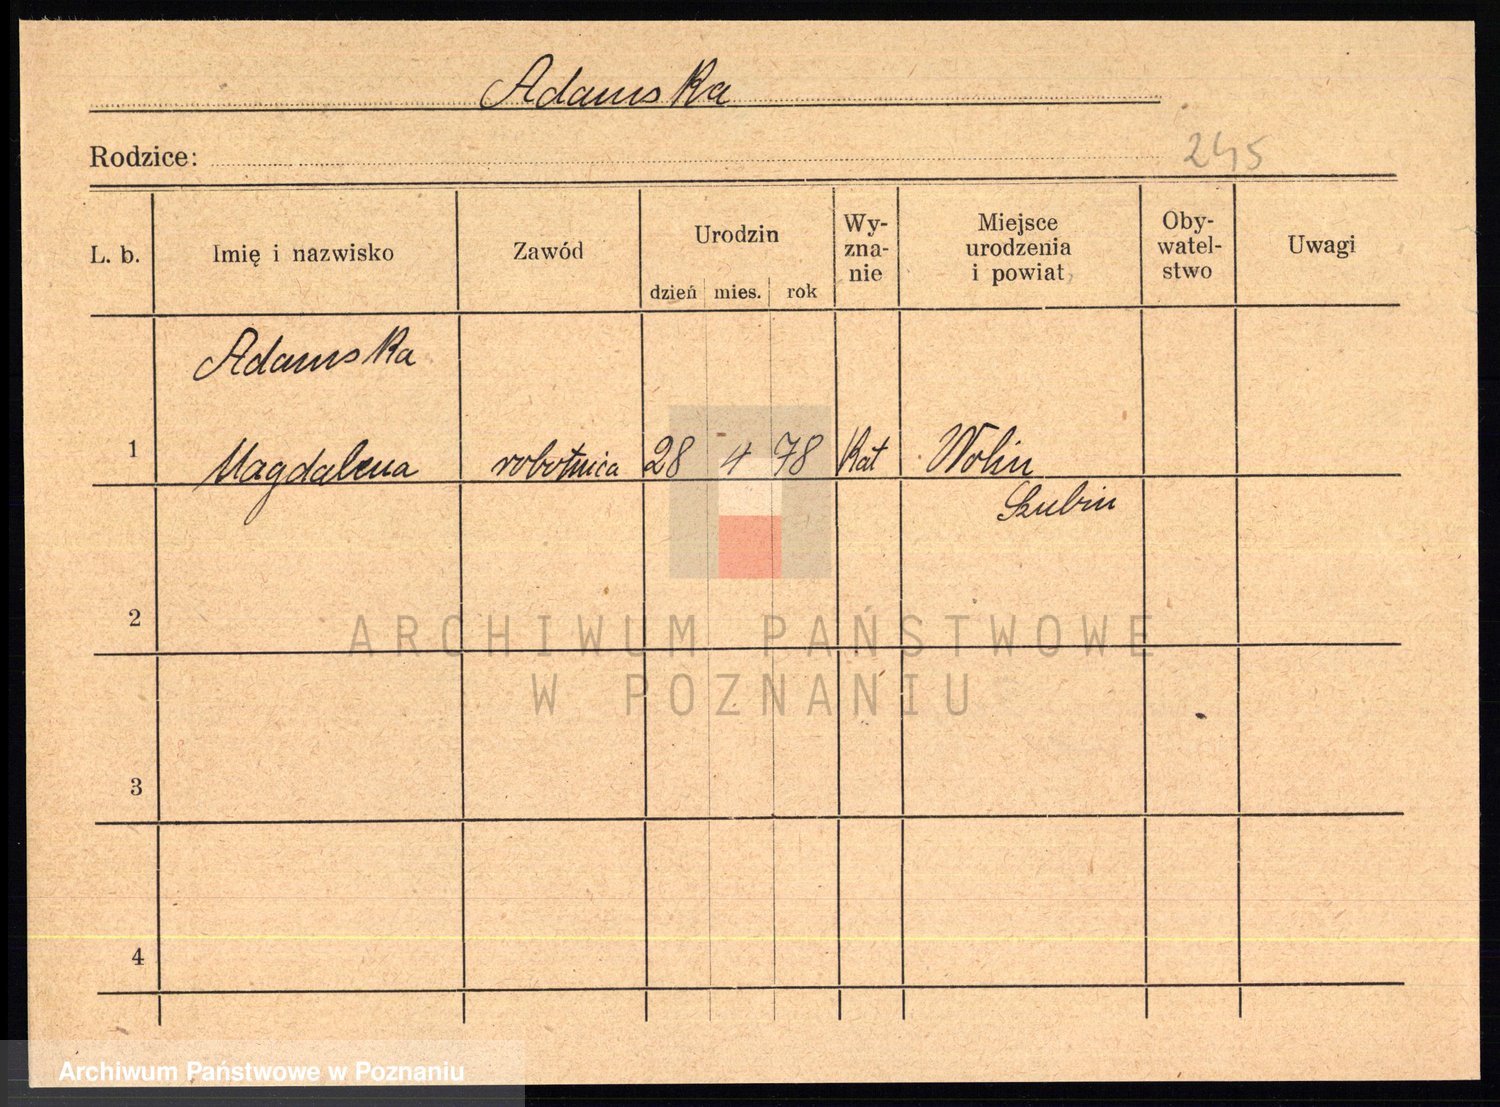 Adamska
Rodzice:
245
L. b.
Imię i nazwisko
Zawód
Urodzin
dzień mies. rok
Wy-
zna-
nie
Miejsce
urodzenia
i powiat
Oby-
watel-
stwo
Uwagi
Adamska
1 Magdalena robotnica 28 4 78 Kat Wolin
Szubin
2
ARCHIWUM PAŃSTWOWE
W POZNANIU
3
4
Archiwum Państwowe w Poznaniu